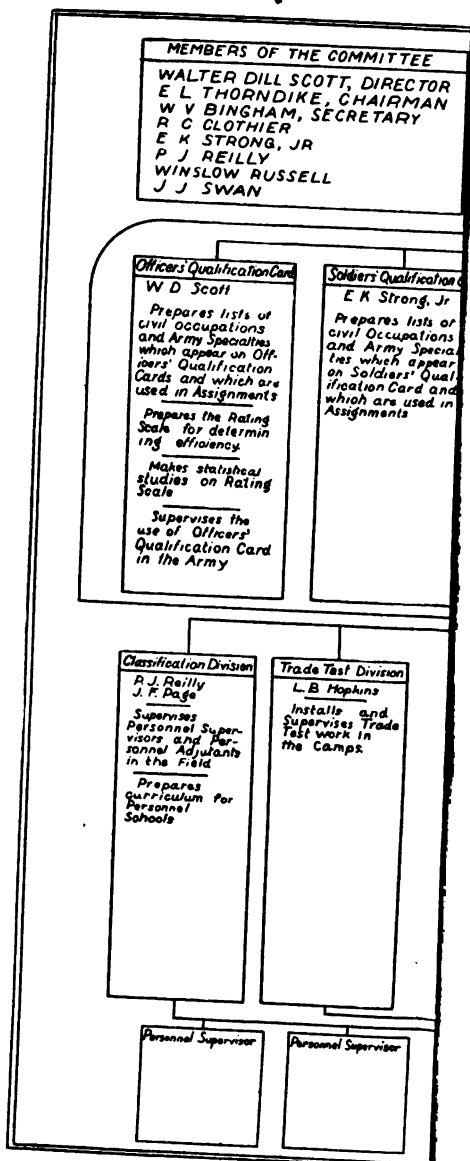 MEMBERS OF THE COMMITTEE
WALTER DILL SCOTT, DIRECTOR
E L THORNDIKE, CHAIRMAN
W V BINGHAM, SECRETARY
R C CLOTHIER
E K STRONG, JR
P J REILLY
WINSLOW RUSSELL
J J SWAN
Officers' Qualification Card
W D Scott
Prepares lists of
civil occupations
and Army Specialties
which appear on Off-
icers' Qualification
Cards and which are
used in Assignments
Prepares the Rating
Scale for determin
ing efficiency.
Makes statistical
studies on Rating
Scale
Supervises the
use of Officers'
Qualification Card
in the Army
Soldiers' Qualification
E K Strong, Jr
Prepares lists of
civil Occupations
and Army Special
ties which appear
on Soldiers' Qual-
ification Card and
which are used in
Assignments
Classification Division
P. J. Reilly
J. F. Page
Supervises
Personnel Super-
visors and Per-
sonnel Adjutants
in the Field
Prepares
curriculum for
Personnel
Schools
Trade Test Division
L. B Hopkins
Installs and
Supervises Trade
Test work in
the Camps.
Personnel Supervisor
Personnel Supervisor